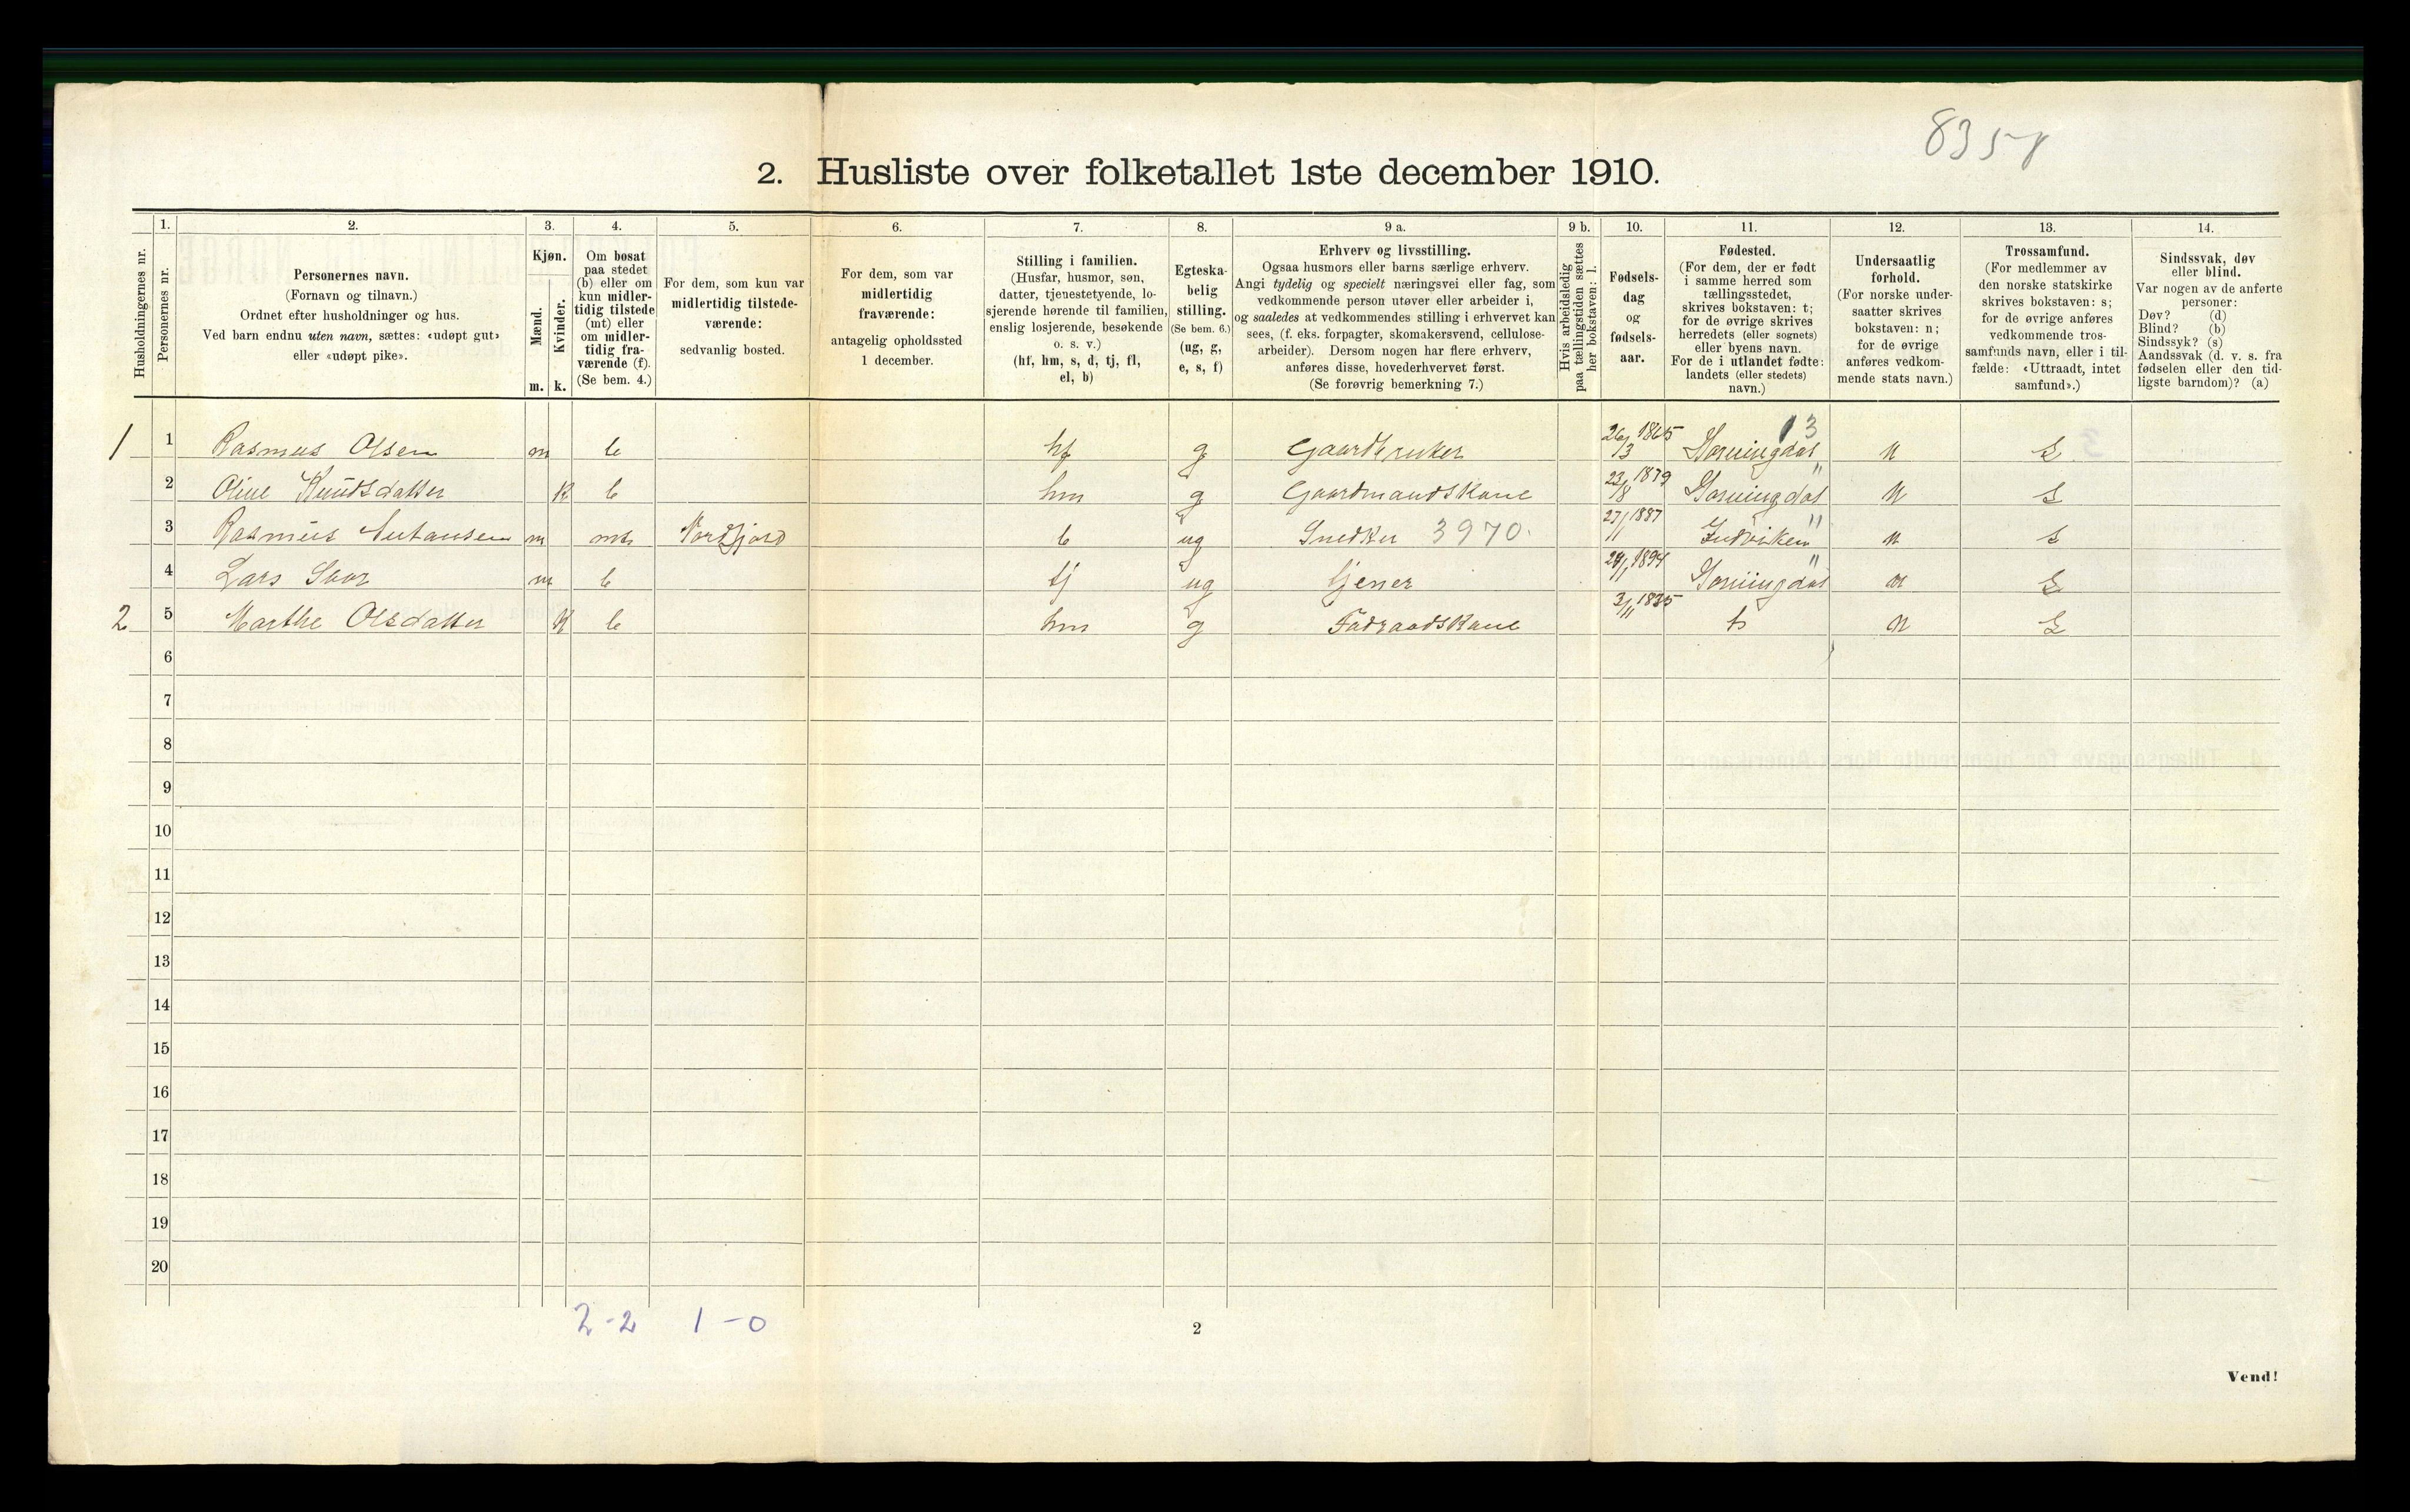 8358
2. Husliste over folketallet 1ste december 1910.
Husholdningernes nr.
1.
Personernes nr.
2.
Personernes navn.
(Fornavn og tilnavn.)
Ordnet efter husholdninger og hus.
Ved barn endnu uten navn, sættes: «udøpt gut»
eller «udøpt pike».
3.
Kjøn.
Mænd.
m.
Kvinder.
k.
4.
Om bosat
paa stedet
(b) eller om
kun midler-
tidig tilstede
(mt) eller
om midler-
tidig fra-
værende (f).
(Se bem. 4.)
5.
For dem, som kun var
midlertidig tilstede-
værende:
sedvanlig bosted.
6.
For dem, som var
midlertidig
fraværende:
antagelig opholdssted
1 december.
7.
Stilling i familien.
(Husfar, husmor, søn,
datter, tjenestetyende, lo-
sjerende hørende til familien,
enslig losjerende, besøkende
o. s. v.)
(hf, hm, s, d, tj, fl,
el, b)
8.
Egteska-
belig
stilling.
(Se bem. 6.)
(ug, g,
e, s, f)
9 a.
Erhverv og livsstilling.
Ogsaa husmors eller barns særlige erhverv.
Angi tydelig og specielt næringsvei eller fag, som
vedkommende person utøver eller arbeider i,
og saaledes at vedkommendes stilling i erhvervet kan
sees, (f. eks. forpagter, skomakersvend, cellulose-
arbeider). Dersom nogen har flere erhverv,
anføres disse, hovederhvervet først.
(Se forøvrig bemerkning 7.)
9 b.
Hvis arbeidsledig
paa tællingstiden sættes
her bokstaven: l.
10.
Fødsels-
dag
og
fødsels-
aar.
11.
Fødested.
(For dem, der er født
i samme herred som
tællingsstedet,
skrives bokstaven: t;
for de øvrige skrives
herredets (eller sognets)
eller byens navn.
For de i utlandet fødte:
landets (eller stedets)
navn.)
12.
Undersaatlig
forhold.
(For norske under-
saatter skrives
bokstaven: n;
for de øvrige
anføres vedkom-
mende stats navn.)
13.
Trossamfund.
(For medlemmer av
den norske statskirke
skrives bokstaven: s;
for de øvrige anføres
vedkommende tros-
samfunds navn, eller i til-
fælde: «Uttraadt, intet
samfund».)
14.
Sindssvak, døv
eller blind.
Var nogen av de anførte
personer:
Døv? (d)
Blind? (b)
Sindssyk? (s)
Aandssvak (d. v. s. fra
fødselen eller den tid-
ligste barndom)? (a)
13
1 1 Rasmus Olsen m b hf g Gaardbruker 26/3 1865 Horningdal n S
2 Oline Knudsdatter k b hm g Gaardmandskone 23/8 1879 Horningdal " n S
3 Rasmus m mt Nordfjord b ug Snedker 3970. 27/11 1887 Indviken " n s
4 Lars m b tj ug tjener 1894 Horningdal " n S
2 5 Marthe Olsdatter k b hm g Føderaadskone 3/11 1835 t n S
6
7
8
9
10
11
12
13
14
15
16
17
18
19
20
2-2 1-0
2
Vend!